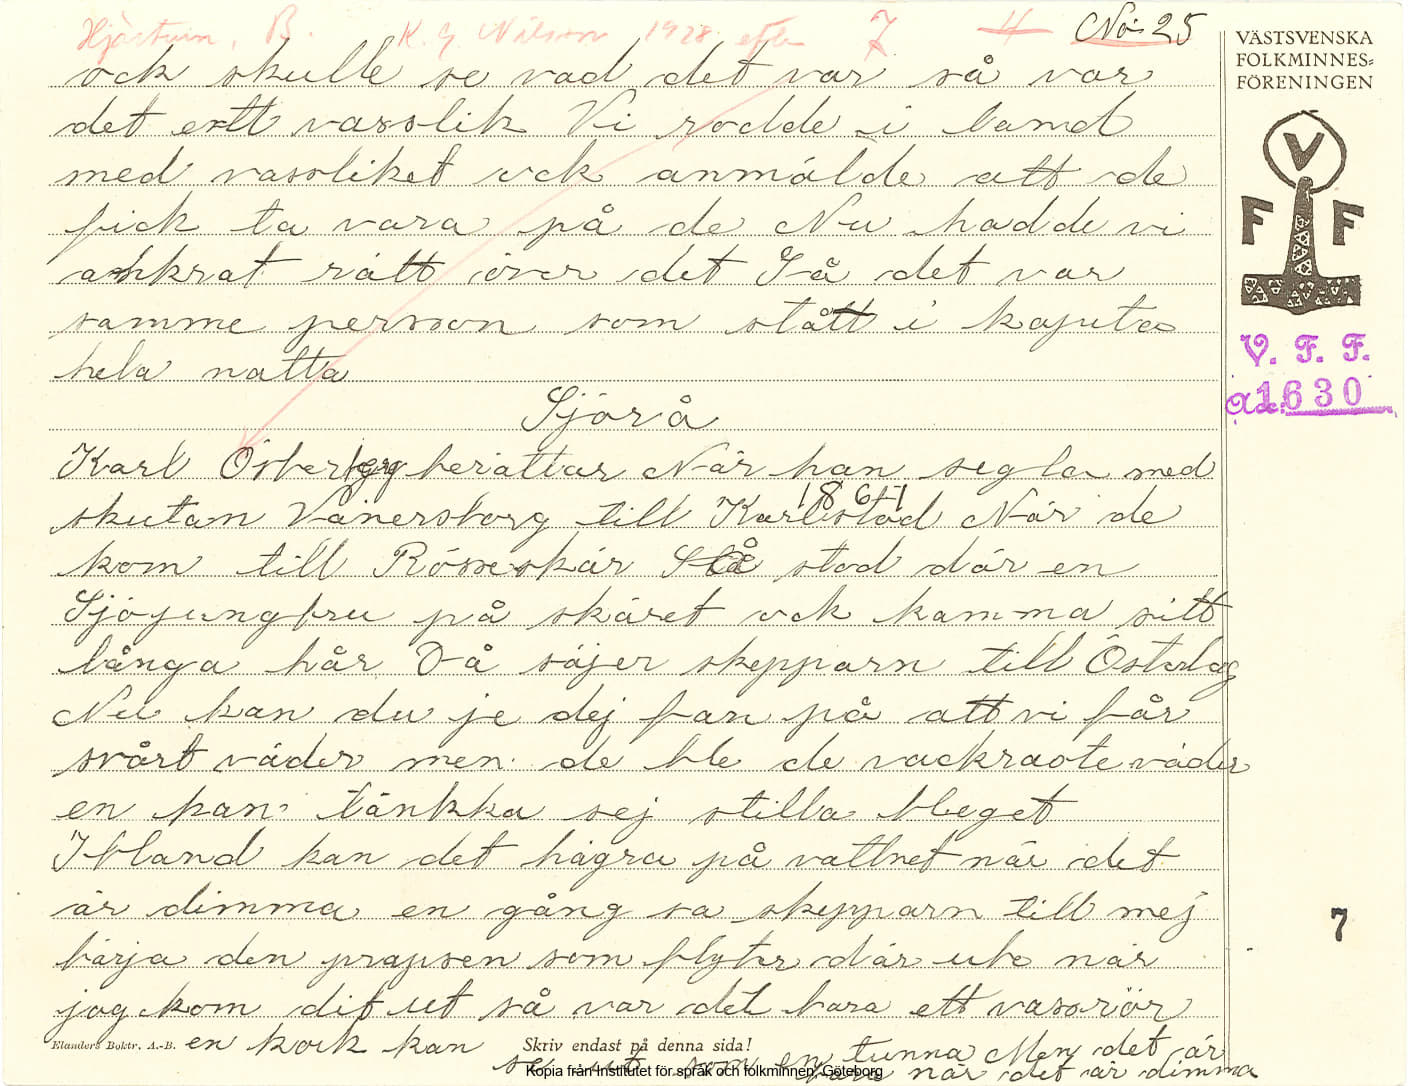 Hjärtum, B. K. G Nilson 1928 efter 7 4 No 25
ock skulle se vad det var så var
det ett vasslik Vi rodde i land
med vassliket ock anmälde att de
fick ta vara på de Nu hadde vi
ankrat rätt över det Så det var
samme person som stått i kajuta
hela natta
Sjörå
Karl Österberg berättar När han segla med
1861
skutan Vänersborg till Karlstad När de
kom till Rösseskär Så stod där en
Sjöjungfru på skäret ock kamma sitt
långa hår Då säjer skepparn till Österbeg
Nu kan du je dej fan på att vi får
svårt väder men de ble de vackraste väder
en kan tänkka sej stilla bleget
Ibland kan det hägra på vattnet när det
är dimma en gång sa skepparn till mej
bärja den prapsen som flyter där ute när
jag kom dit ut så var det bara ett vassrör
en kork kan
se ut som en tunna Men det är
bara när det är dimma
Elanders Boktr. A.-B.
Skriv endast på denna sida!
Kopia från Institutet för språk och folkminnen, Göteborg
VÄSTSVENSKA
FOLKMINNES=
FÖRENINGEN
V
F F
V. F. F.
Acc. 1630
7